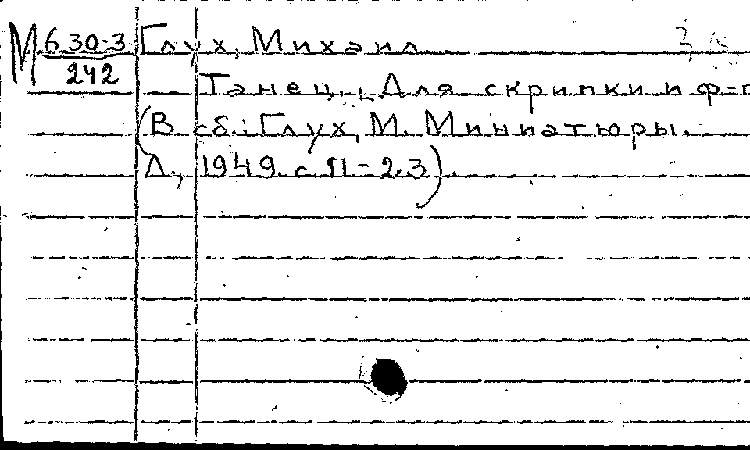 М 630-3 Глух, Михаил
242
Танец. Для скрипки и ф-п
(В сб.: Глух, М. Миниатюры.
Л., 1949. с. 11-23).